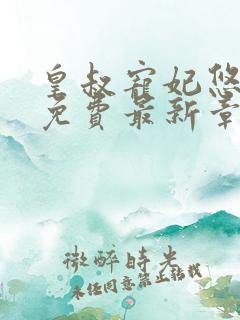 皇叔宠妃悠
免費最新章
微醉時光
未经同意禁止转载